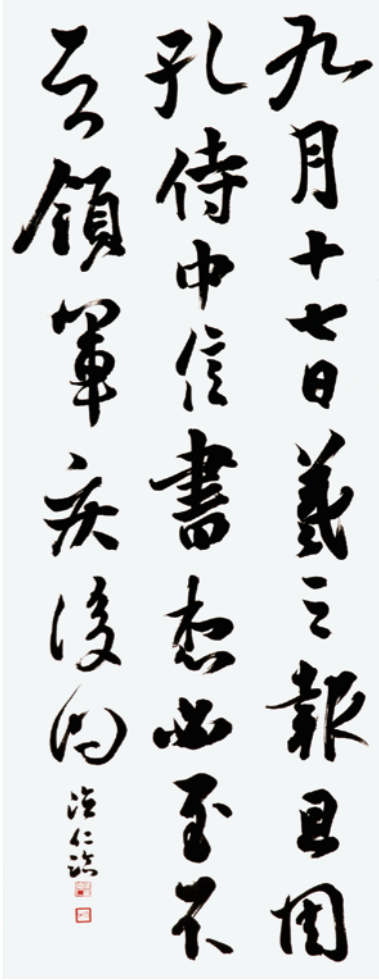 九月十七日羲之報且因
孔侍中信書想必至不
知領軍疾後問
仁臨